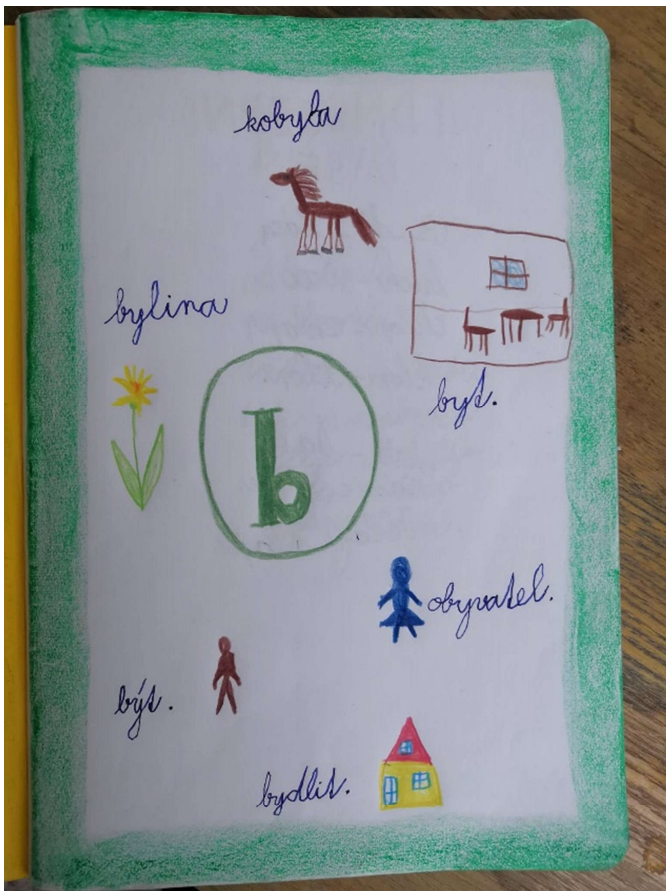 kobyla
bylina
byt.
b
obyvatel.
být.
bydlit.